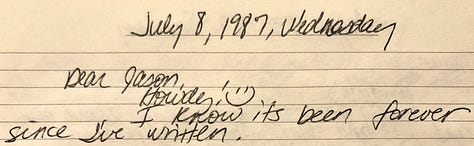 July 8, 1987, Wednesday
Dear Jason,
Howdy! ☺
I know its been forever
since I've written.